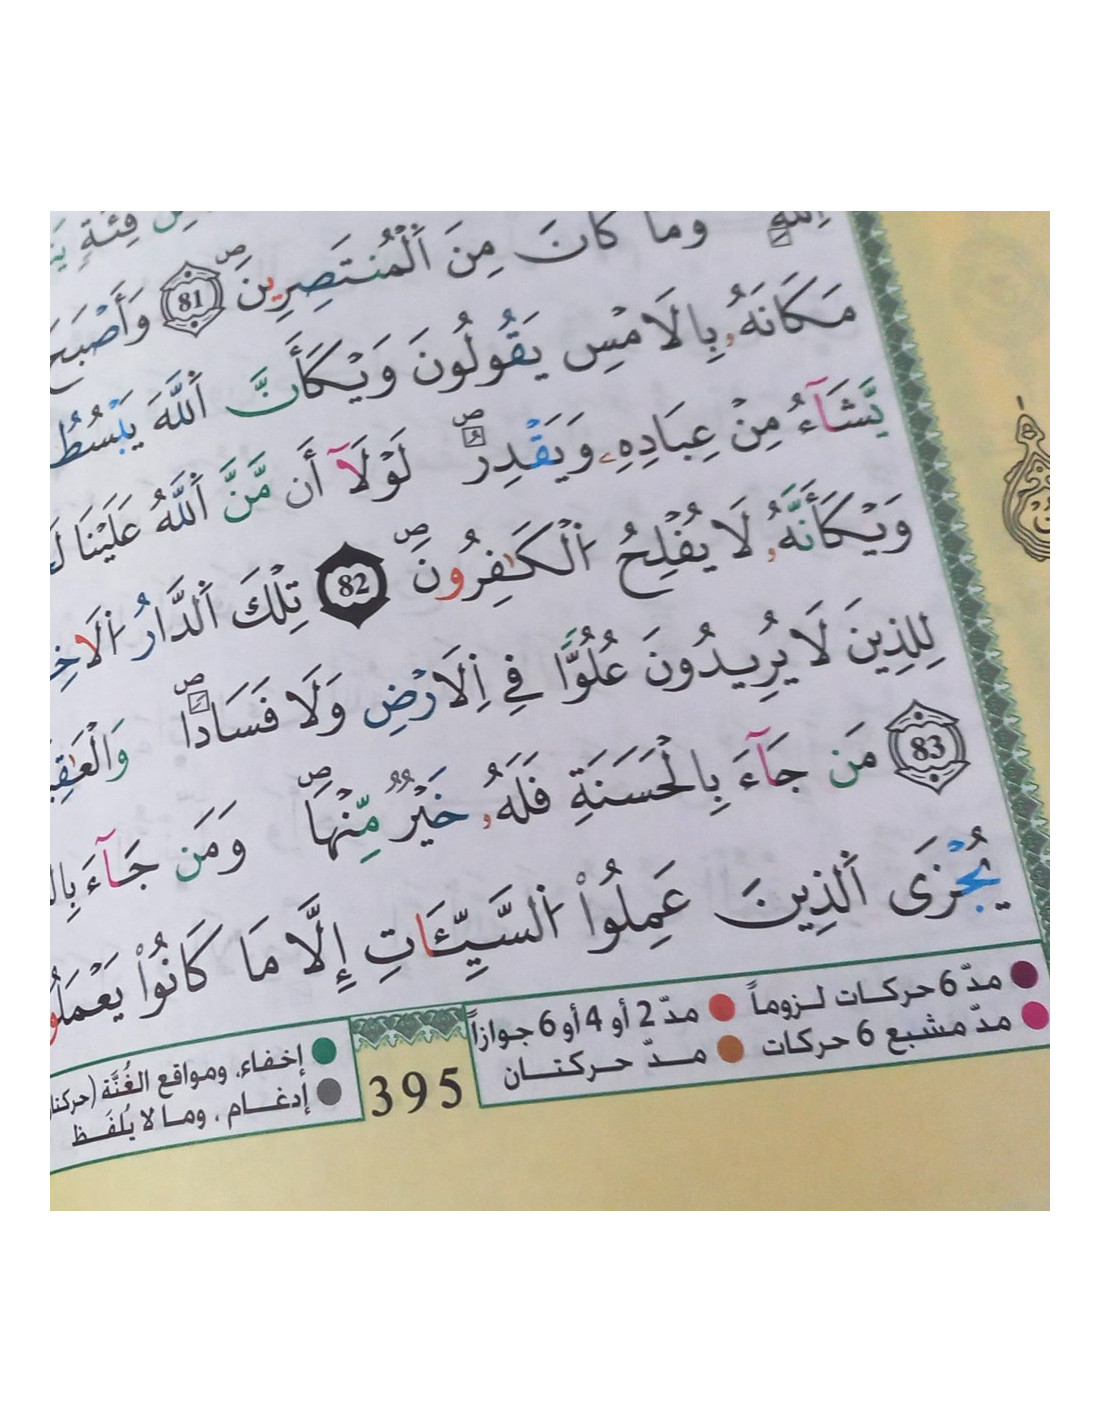 اَللَّهِ وَمَا كَانَ مِنَ اَلْمُنتَصِرِينَ 81
مَكَانَهُۥ بِالَامْسِ يَقُولُونَ وَيْكَأَنَّ اَللَّهَ يَبْسُطُ
يَّشَآءُ مِنْ عِبَادِهِۦ وَيَقْدِرُ لَوْلَآ أَن مَّنَّ اَللَّهُ عَلَيْنَا
وَيْكَأَنَّهُۥ لَا يُفْلِحُ اُلْكَٰفِرُونَ 82 تِلْكَ اَلدَّارُ
لِلذِينَ لَا يُرِيدُونَ عُلُوّاً فِي اِلَارْضِ وَلَا فَسَاداً
83 مَن جَآءَ بِالْحَسَنَةِ فَلَهُۥ خَيْرٌ مِّنْهَا وَمَن جَآءَ
يُجْزَى اَلذِينَ عَمِلُواْ اُلسَّيِّـَٔاتِ إِلَّا مَا كَانُواْ
مدّ 6 حركات لـزوماً مدّ 2 أو 4 أو 6 جوازاً
مدّ مشبع 6 حركات مـدّ حـركتـــان
إخفاء، ومواقع الغُنَّة
إدغـام ، ومـا لا يُلفَـظ
395